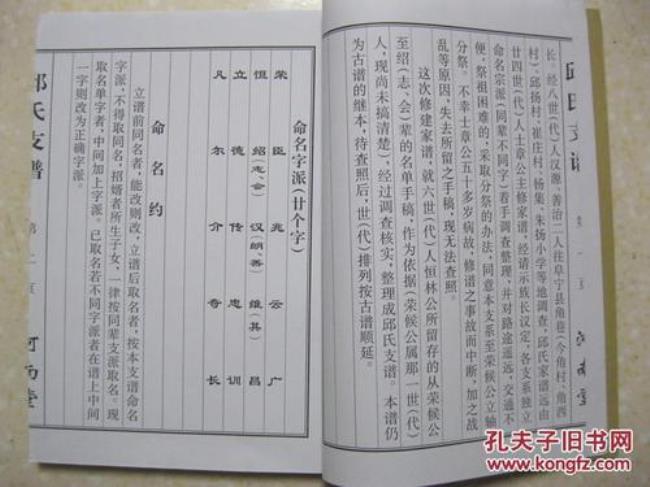 邱氏支谱
长。经八世(代)人汉源、善治二人往阜宁县角巷(今角村、角西
村)、邱扬村、崔庄村、杨集、朱扬小学等地调查,邱氏家谱远由
廿四世(代)人士章公主修家谱,经请示族长议定,各支系独立
命名宗派(同辈不同字)着手调查整理,并对路途遥远,交通不
便,祭祖困难的,采取分祭的办法,同意本支系至荣候公立轴
分祭。不幸士章公五十多岁病故,修谱之事故而中断,加之战
乱等原因,失去所留之手稿,现无法查照。
这次修建家谱,就六世(代)人恒林公所留存的从荣候公
至绍(志、会)辈的名单手稿,作为依据(荣候公属那一世(代)
人,现尚未搞清楚)、经过调查核实,整理成邱氏支谱。本谱仍
为古谱的继本,待查照后,世(代)排列按古谱顺延。
命名字派(廿个字)
荣臣兆云广
恒绍(志、会)汉(朗、善)维(其)昌
立德传忠训
凡尔介奇长
命名约
立谱前同名者,能改则改,立谱后取名者,按本支谱命名
字派,不得取同名,招婿者所生子女,一律按同辈支派取名。现
取名单字者,中间加上字派。已取名若不同字派者在谱上中间
一字则改为正确字派。
邱氏支谱 第二页 河南堂
孔夫子旧书网
www.kongfz.com